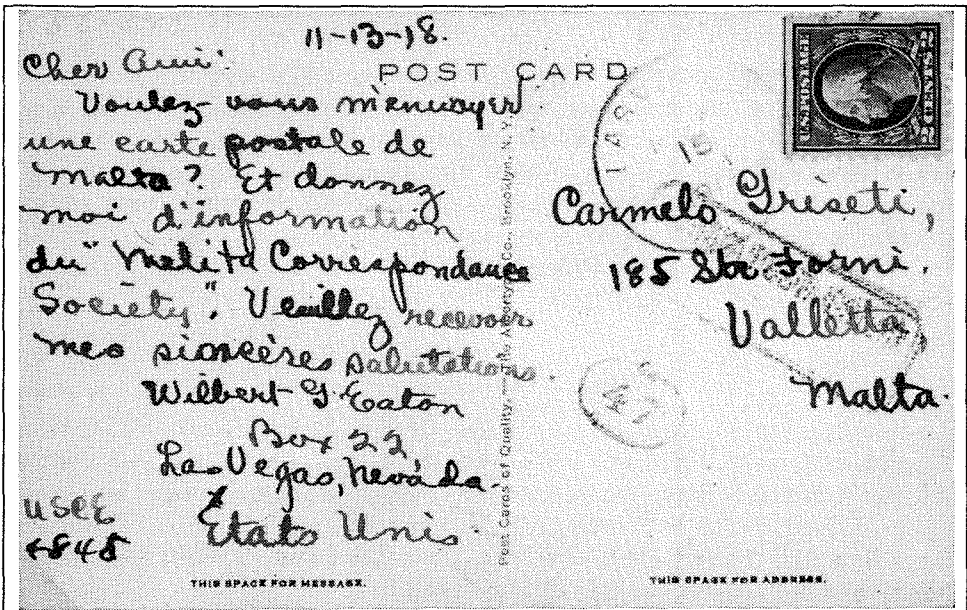 11-13-18.
Cher Ami:
POST CARD
Voulez-vous m'envoyer
une carte postale de
Malta? Et donnez
moi d'information
du "Melita Correspondance
Society". Veuillez recevoir
mes sioncères salutations.
Wilbert G. Eaton
Box 22
Las Vegas, Nevada.
Etats Unis.
USCE
4848
THIS SPACE FOR MESSAGE.
Post Cards of Quality. — The Albertype Co., Brooklyn, N.Y.
U.S. POSTAGE
Carmelo Griseti,
185 Str Forni.
Valletta,
Malta.
47
THIS SPACE FOR ADDRESS.